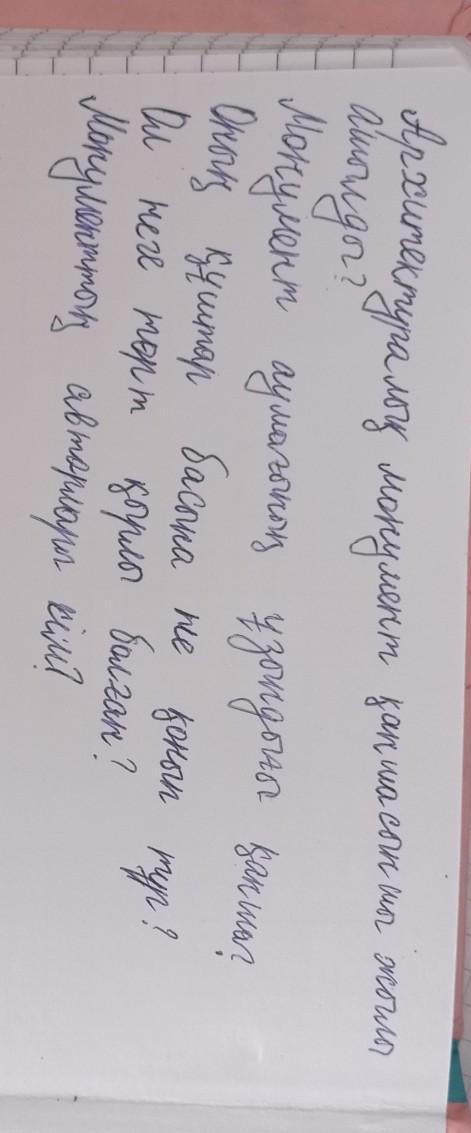 Архитектуралық монумент қанша сыншы жылы
ашылды?
Монумент аумағының ұзындығы қанша?
Оның құштар басына не қонып тұр?
Ол неге төрт қырлы болған?
Монументтің авторлары кім?